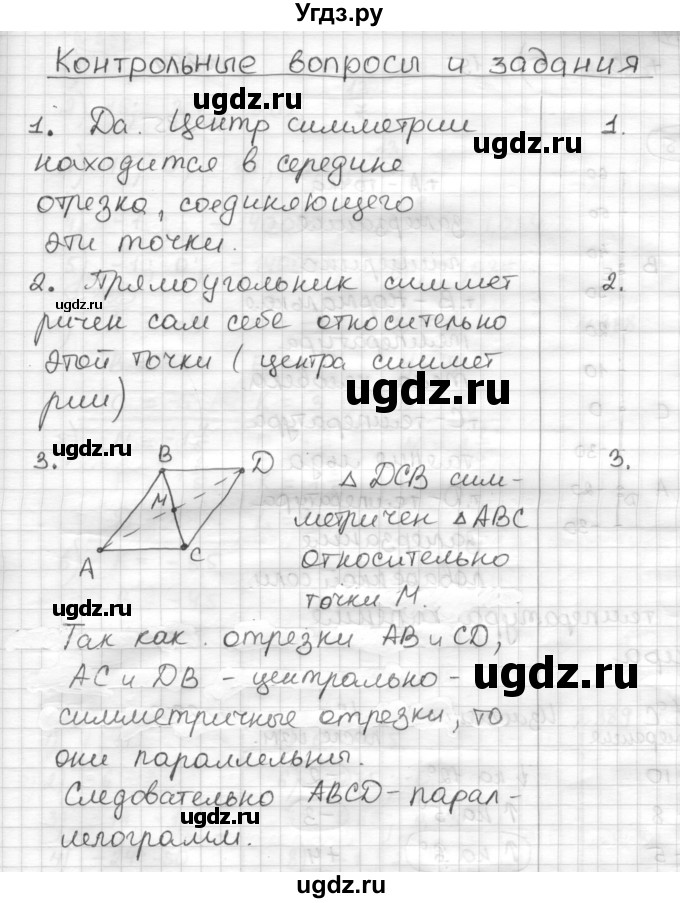 Угдз.ру
Контрольные вопросы и задания
1. Да. Центр симметрии 1.
находится в середине
отрезка, соединяющего
эти точки.
2. Прямоугольник симмет 2.
ричен сам себе относительно
этой точки ( центра симмет
рии)
3. B D 3.
M
A C
△ DCB сим-
метричен △ ABC
относительно
точки M.
Так как отрезки AB и CD,
AC и DB - центрально-
симметричные отрезки, то
они параллельны.
Следовательно ABCD - парал-
лелограмм.
ugdz.ru
ugdz.ru
ugdz.ru
ugdz.ru
ugdz.ru
ugdz.ru
ugdz.ru
ugdz.ru
ugdz.ru
ugdz.ru
ugdz.ru